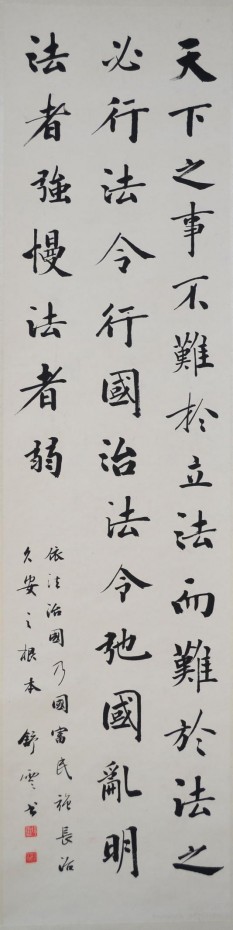 天下之事不難於立法而難於法之
必行法令行國治法令弛國亂明
法者強慢法者弱
依法治國乃國富民強長治
久安之根本 舒雲书